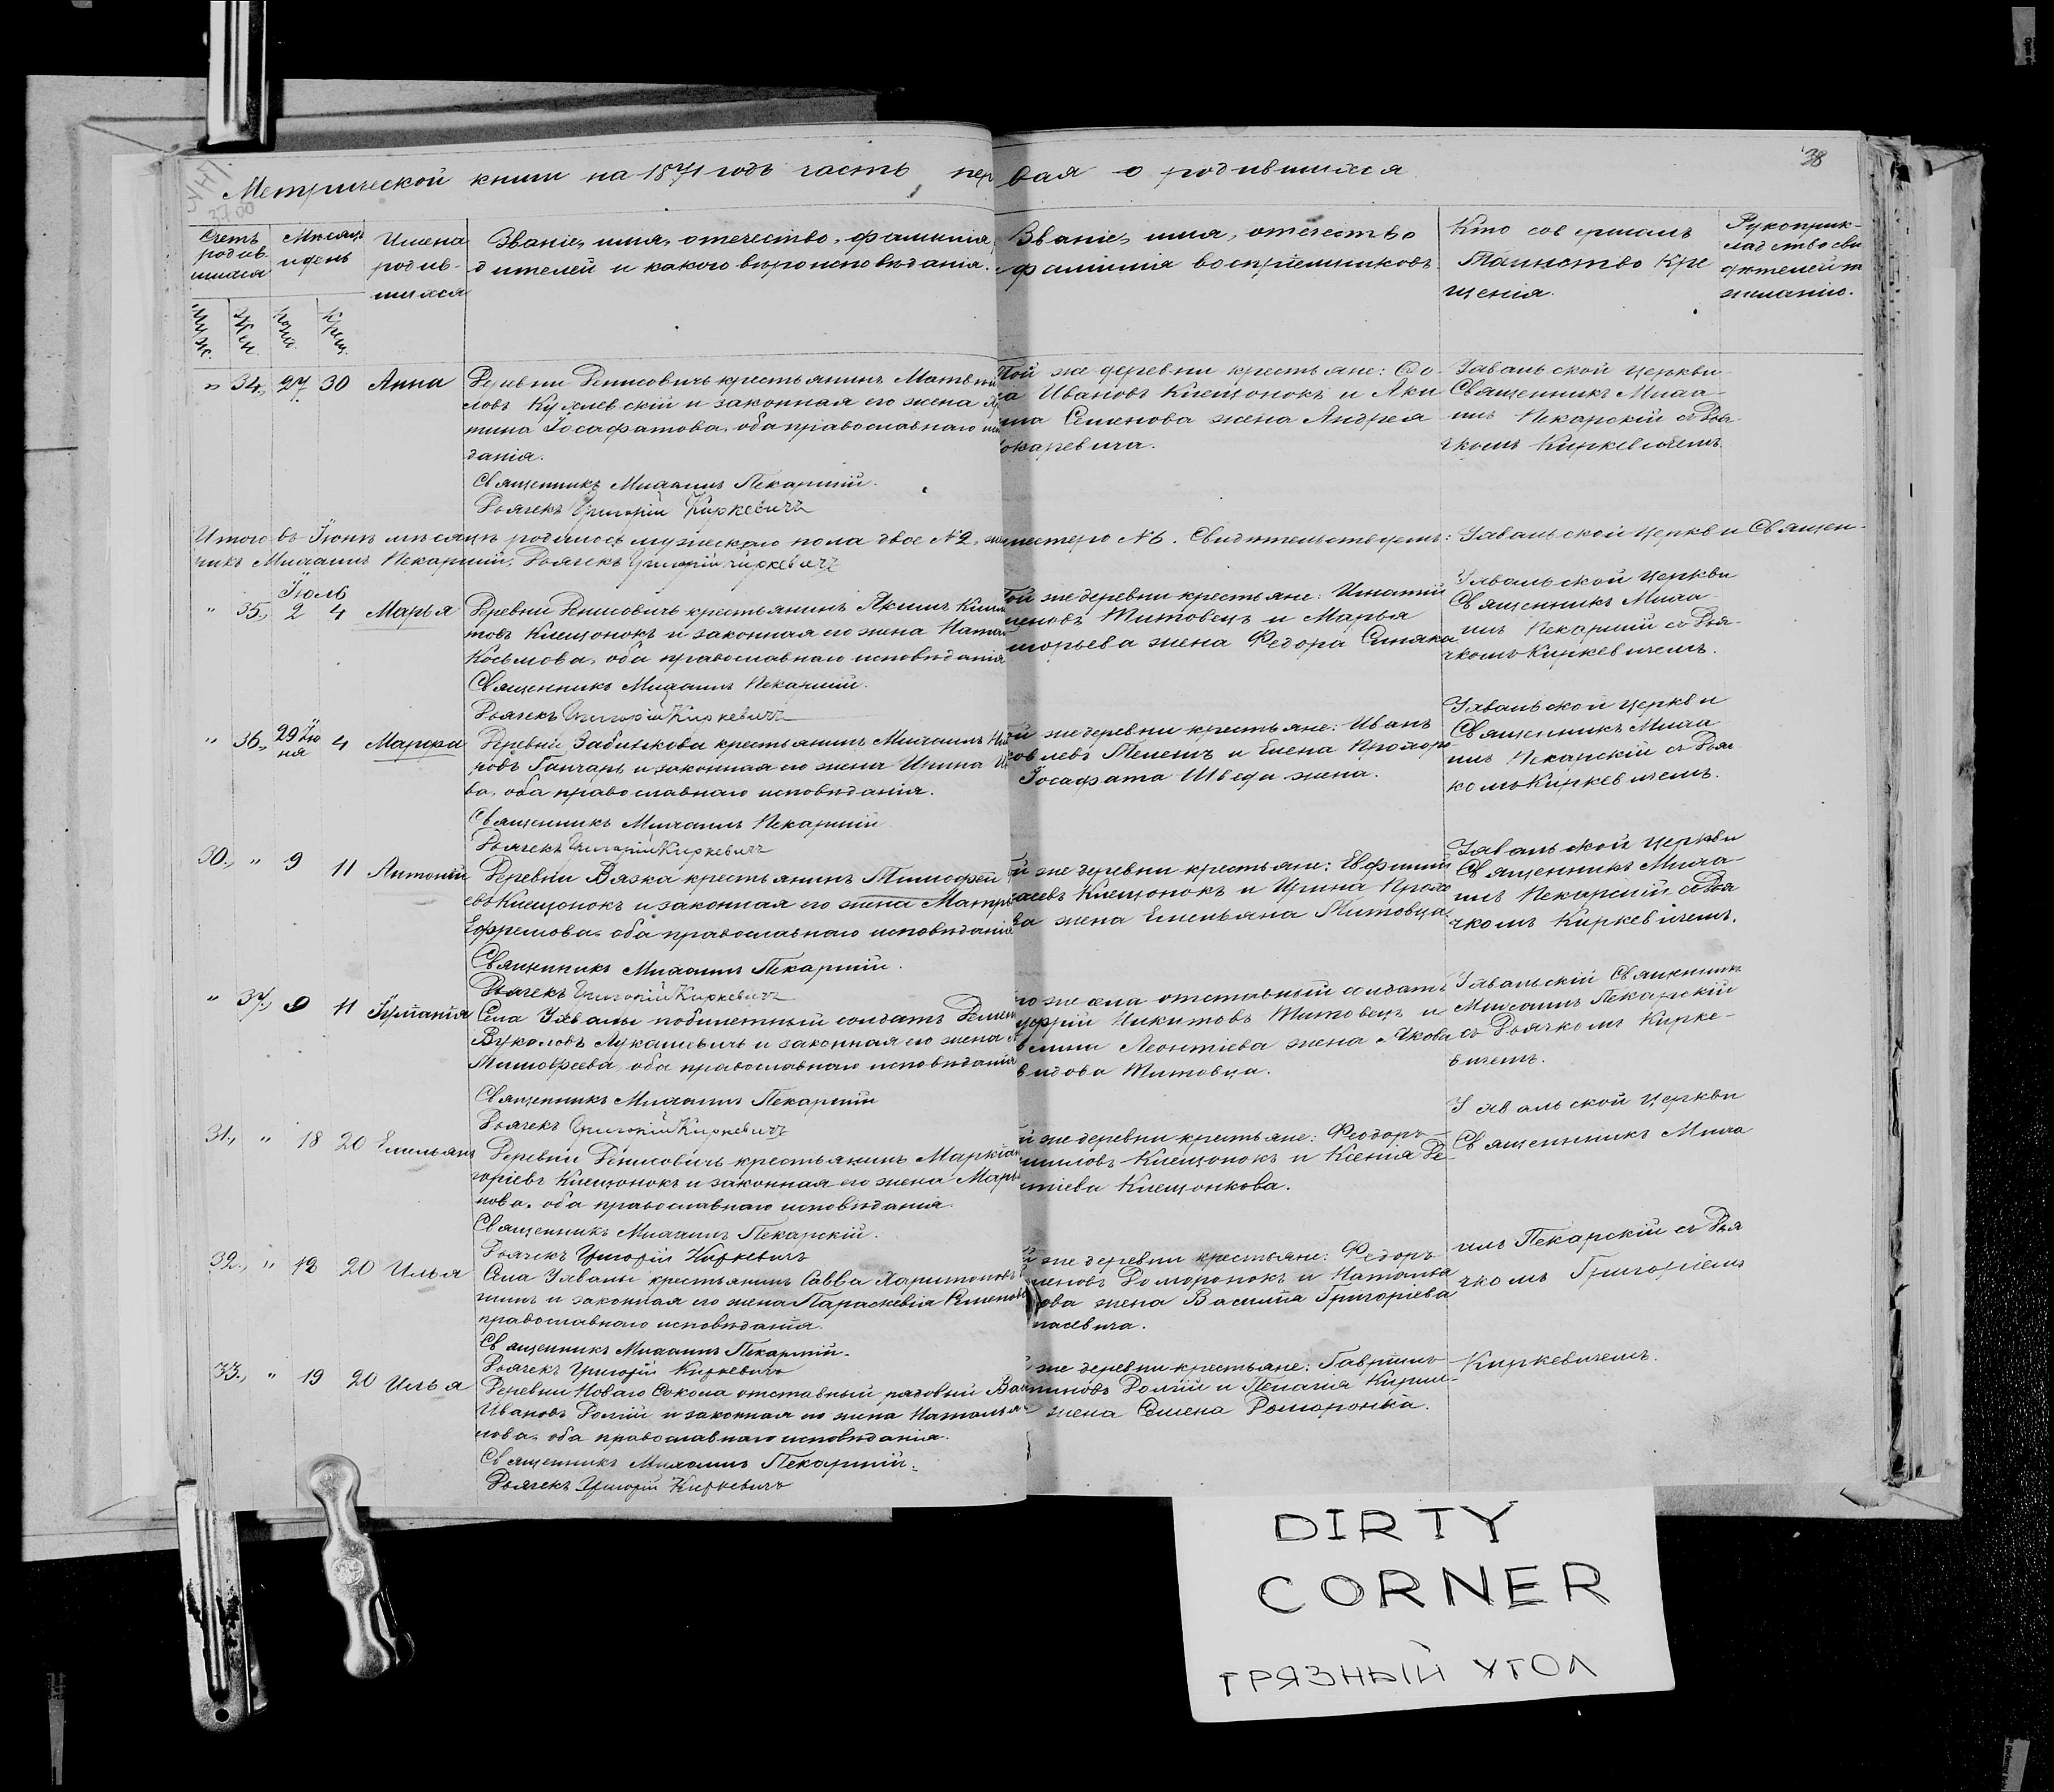 38
Метрической книги на 1871 годъ часть первая о родившихся
Счетъ родившихся
Мѣсяцъ и день
Имена родившихся
Званіе, имя, отечество, фамилія
дителей и какого вѣроисповѣданія.
Званіе, имя, отечество
фамилія воспріемниковъ
Кто совершалъ
Таинство Кре
щенія.
Рукоприк-
ладство сви
дѣтелей по
желанію.
Муж.
Жен.
Рожд.
Крещ.
" 34., 27 30 Анна
Деревни Денисовичъ крестьянинъ Матвѣй
ловъ Кухлевскій и законная его жена
тина Іосафатова, оба православнаго
данія.
Священникъ Михаилъ Пекарскій.
Дьячекъ Григорій Киркевичъ
Той же деревни крестьяне:
Ивановъ Клещонокъ и Аки
Семенова жена Андрея
Уѳвальской церкви
Священникъ Миха-
илъ Пекарскій съ Дья-
чкомъ Киркевичемъ
Итого въ Іюнѣ мѣсяцѣ родилось мужескаго пола двое №2, шестеро №6. Свидѣтельствуемъ: Уѳвальской Церкви Священ-
никъ Михаилъ Пекарскій, Дьячекъ Григорій Киркевичъ
Іюль
" 35., 2 4 Марья
Деревни Денисовичъ крестьянинъ Якимъ
товъ Клещонокъ и законная его жена
Косьмова, оба православнаго исповѣданія
Священникъ Михаилъ Пекарскій.
Дьячекъ Григорій Киркевичъ
той же деревни крестьяне: Игнатій
Титовецъ и Марья
жена Федора Синяка
Уѳвальской Церкви
Священникъ Миха-
илъ Пекарскій съ Дья-
чкомъ Киркевичемъ.
" 36., 29 Ію
ня 4 Марѳа
Деревни Забинкова крестьянинъ Михаилъ
ровъ Гончаръ и законная его жена Ирина
ва, оба православнаго исповѣданія.
Священникъ Михаилъ Пекарскій
Дьячекъ Григорій Киркевичъ
же деревни крестьяне: Иванъ
и Елена Прохоро
Іосафата Шведа жена.
Уѳвальской Церкви
Священникъ Миха
илъ Пекарскій съ Дья
комъ Киркевичемъ.
30., " 9 11 Антоній
Деревни Вязка крестьянинъ Тимофей
евъ Клещонокъ и законная его жена Матр
Ефремова, оба православнаго исповѣданія
Священникъ Михаилъ Пекарскій.
Дьячекъ Григорій Киркевичъ
же деревни крестьяне: Евфимій
Клещонокъ и Ирина Прохо
ва жена Емельяна Титовца
Уѳвальской Церкви
Священникъ Миха-
илъ Пекарскій съ Дья
чкомъ Киркевичемъ.
" 37., 9 11 Іуліанія
Села Уѳвалы побилетный солдатъ
Вуколовъ Лукашевичъ и законная его жена
Тимоѳеева, оба православнаго исповѣданія
Священникъ Михаилъ Пекарскій
Дьячекъ Григорій Киркевичъ
же села отставный солдатъ
Никитовъ Титовецъ и
Леонтіева жена Якова
Титовца.
Уѳвальскій Священникъ
Михаилъ Пекарскій
съ Дьячкомъ Кирке-
вичемъ.
31., " 18 20 Емельянъ
Деревни Денисовичъ крестьянинъ Маркіанъ
горіевъ Клещонокъ и законная его жена Марѳ
нова, оба православнаго исповѣданія.
Священникъ Михаилъ Пекарскій.
Дьячекъ Григорій Киркевичъ
же деревни крестьяне: Феодоръ
Клещонокъ и Ксенія Де-
Клещонкова.
Уѳвальской Церкви
Священникъ Миха
32., " 18 20 Илья
Села Уѳвалы крестьянинъ Савва Харитоновъ
и законная его жена Параскевія Семенова
православнаго исповѣданія.
Священникъ Михаилъ Пекарскій.
Дьячекъ Григорій Киркевичъ
же деревни крестьяне: Федоръ
Доморонокъ и Наталья
жена Василія Григоріева
илъ Пекарскій съ Дья
чкомъ Григоріемъ
33., " 19 20 Илья
Деревни Новаго Сокола отставный рядовый
Ивановъ Долгій и законная его жена Наталья
нова, оба православнаго исповѣданія.
Священникъ Михаилъ Пекарскій.
Дьячекъ Григорій Киркевичъ
же деревни крестьяне: Гавріилъ
Долгій и Пелагія Кирил-
жена Семена Доморонка.
Киркевичемъ.
DIRTY
CORNER
ГРЯЗНЫЙ УГОЛ